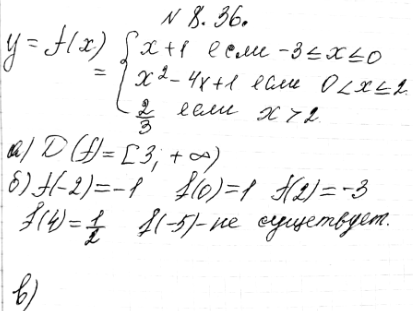 N 8.36.
y = f(x) = { x+1 если -3 ≤ x ≤ 0
x² - 4x + 1 если 0 < x ≤ 2
2/3 если x > 2
а) D(f) = [3; +∞)
б) f(-2) = -1 f(0) = 1 f(2) = -3
f(4) = 1/2 f(-5) - не существует.
в)